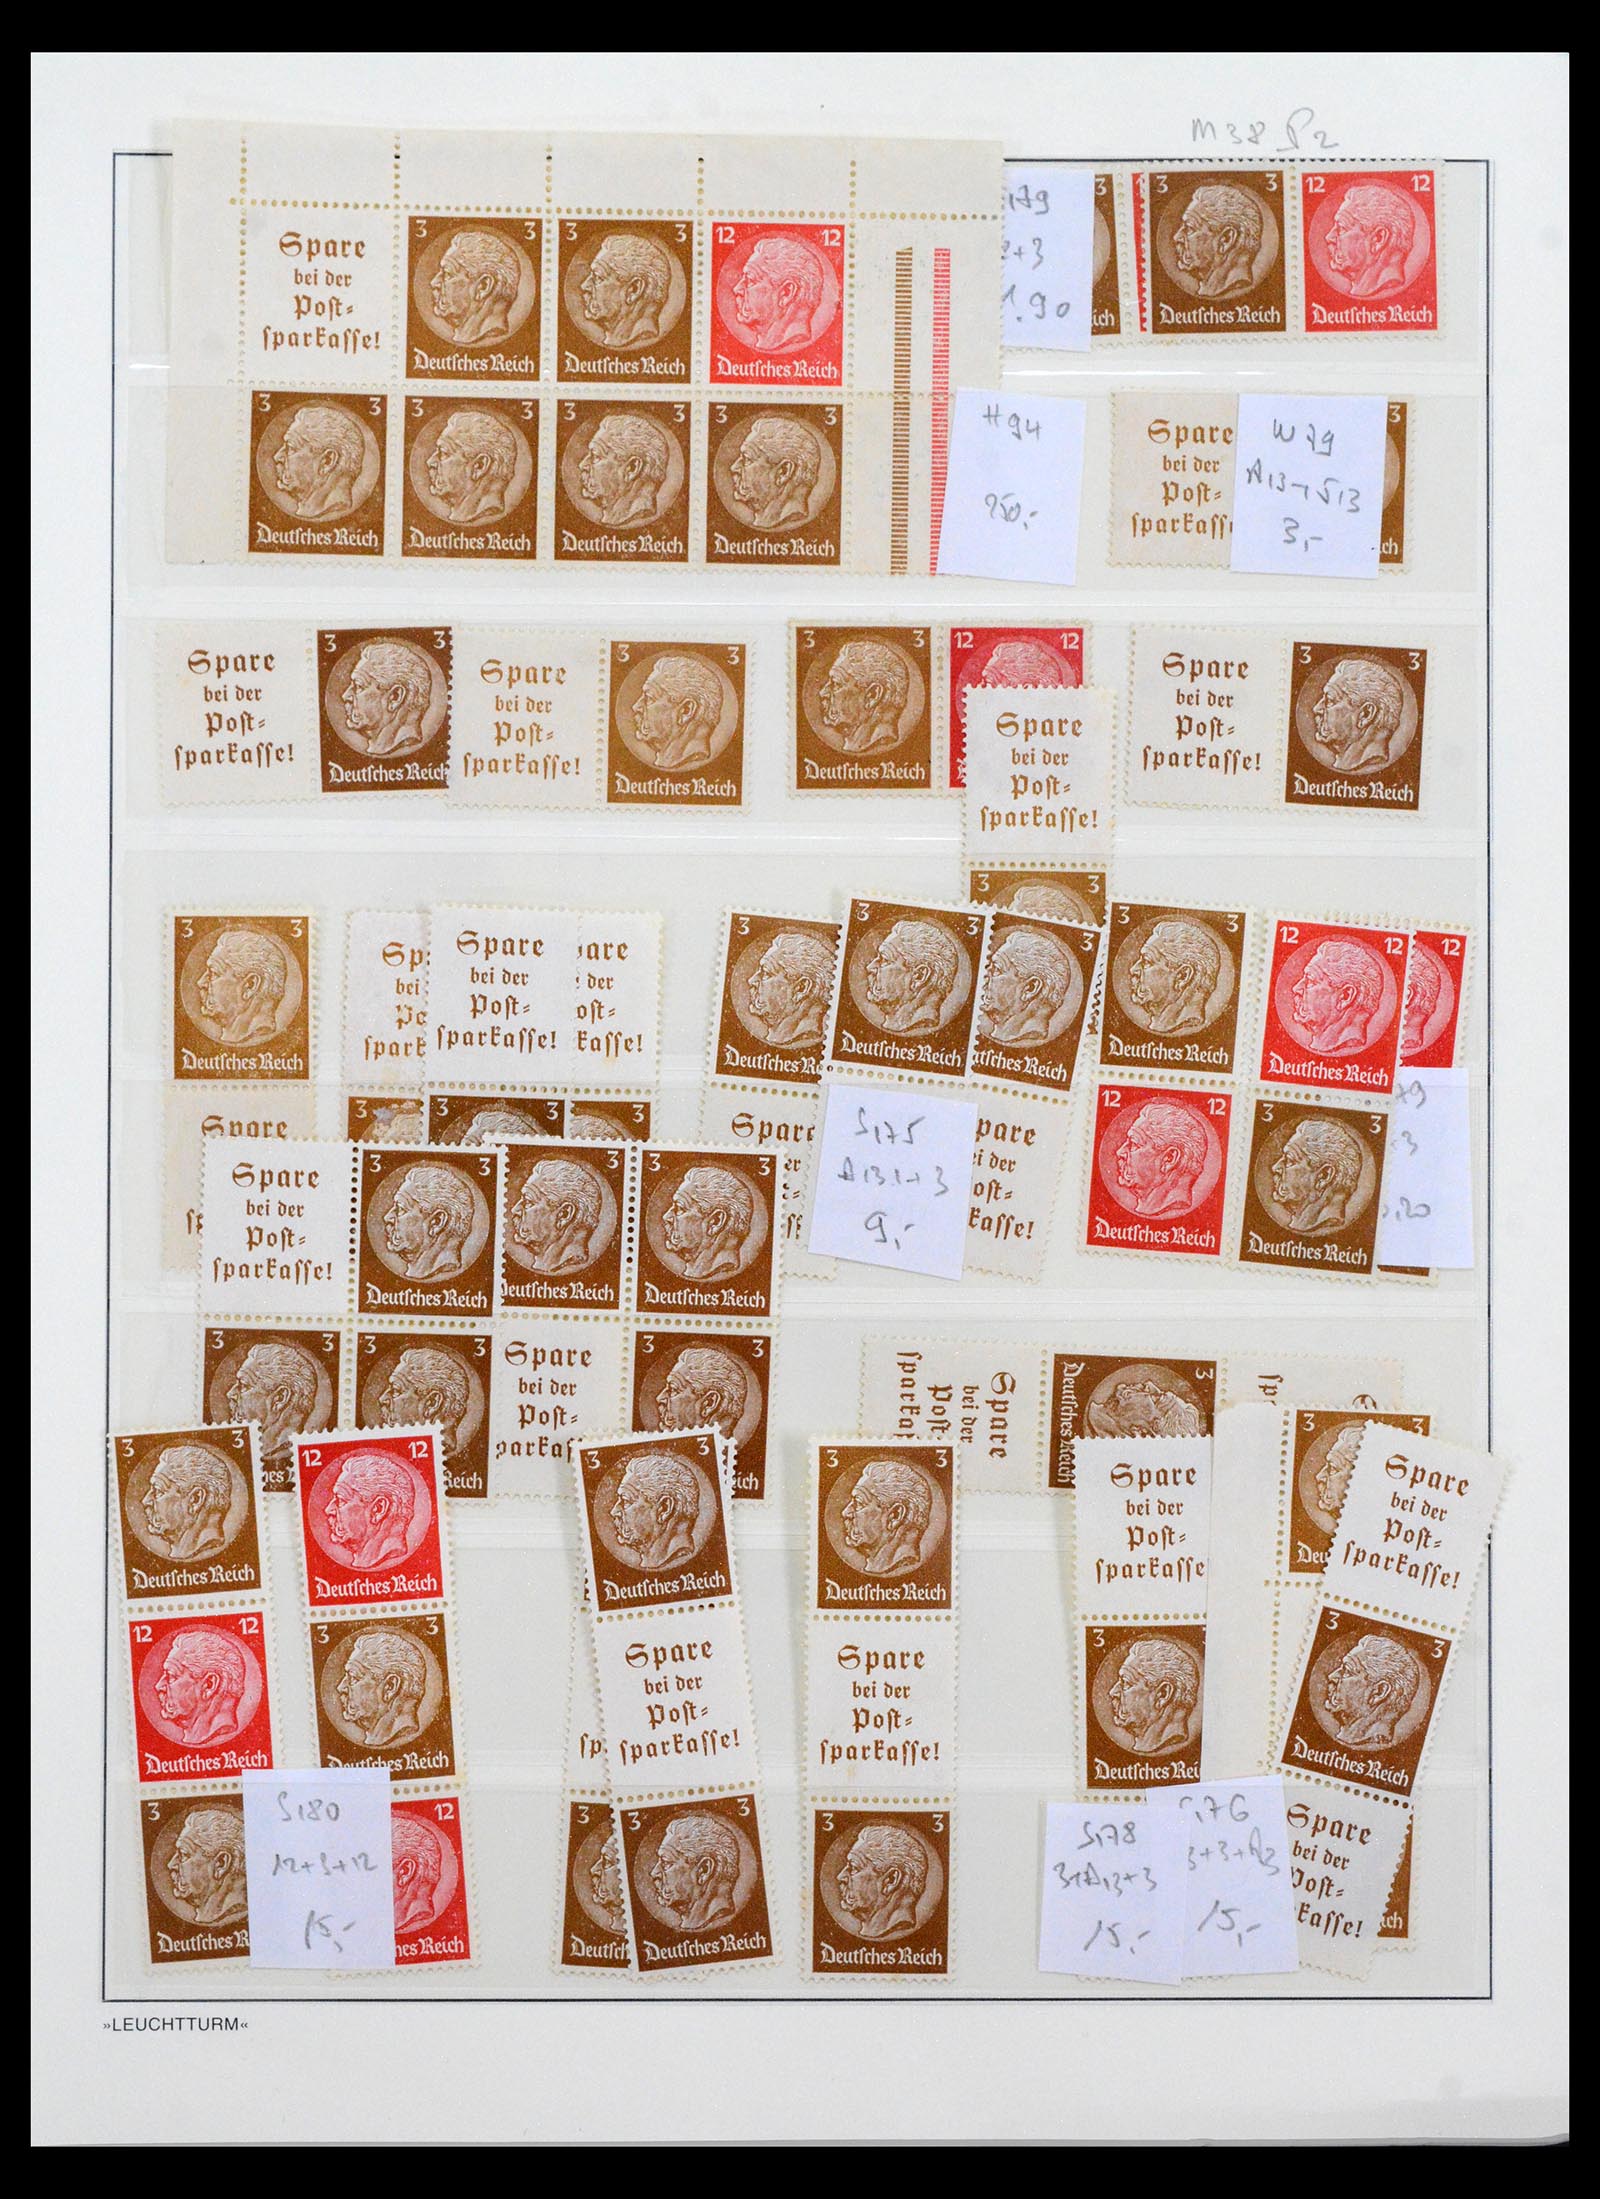 M38 P2
Spare
bei der
Post=
sparkasse!
3 3
Deutsches Reich
3 3
Deutsches Reich
12 12
Deutsches Reich
3 3
Deutsches Reich
3 3
Deutsches Reich
3 3
Deutsches Reich
3 3
Deutsches Reich
+3
1.90
3
3 3
Deutsches Reich
12 12
Deutsches Reich
H94
250,-
Spare
bei der
Post=
W79
3,-
3
Spare
bei der
Post=
sparkasse!
3 3
Deutsches Reich
Spare
bei der
Post=
sparkasse!
3 3
Deutsches Reich
3 3
Deutsches Reich
12 12
Spare
bei der
Post=
sparkasse!
3 3
Spare
bei der
Post=
sparkasse!
3 3
Deutsches Reich
3 3
Deutsches Reich
Spare
bei
Spare
bei der
Post=
sparkasse!
3 3
der
3
3
3 3
Deutsches Reich
3
3 3
Deutsches Reich
12 12
Deutsches Reich
12
12 12
Deutsches Reich
3 3
Deutsches Reich
S175
A13.1+3
9,-
Spare
bei der
Post=
sparkasse!
3 3
Deutsches Reich
3 3
Deutsches Reich
3 3
Deutsches Reich
3 3
3 3
Spare
bei der
Post=
3 3
Spare
bei der
Post=
3
Deutsches Reich
3 3
Deutsches Reich
12 12
Deutsches Reich
3
12 12
Deutsches Reich
3 3
Deutsches Reich
12
S180
12+3+12
15,-
3 3
Deutsches Reich
Spare
bei der
Post=
sparkasse!
3 3
Deutsches Reich
3 3
Deutsches Reich
Spare
bei der
Post=
sparkasse!
3 3
Deutsches Reich
Spare
bei der
Post=
sparkasse
3
S178
3+A13+3
15,-
15,-
3
Spare
bei der
Post=
sparkasse!
3 3
Deutsches Reich
Spare
bei der
Post=
»LEUCHTTURM«